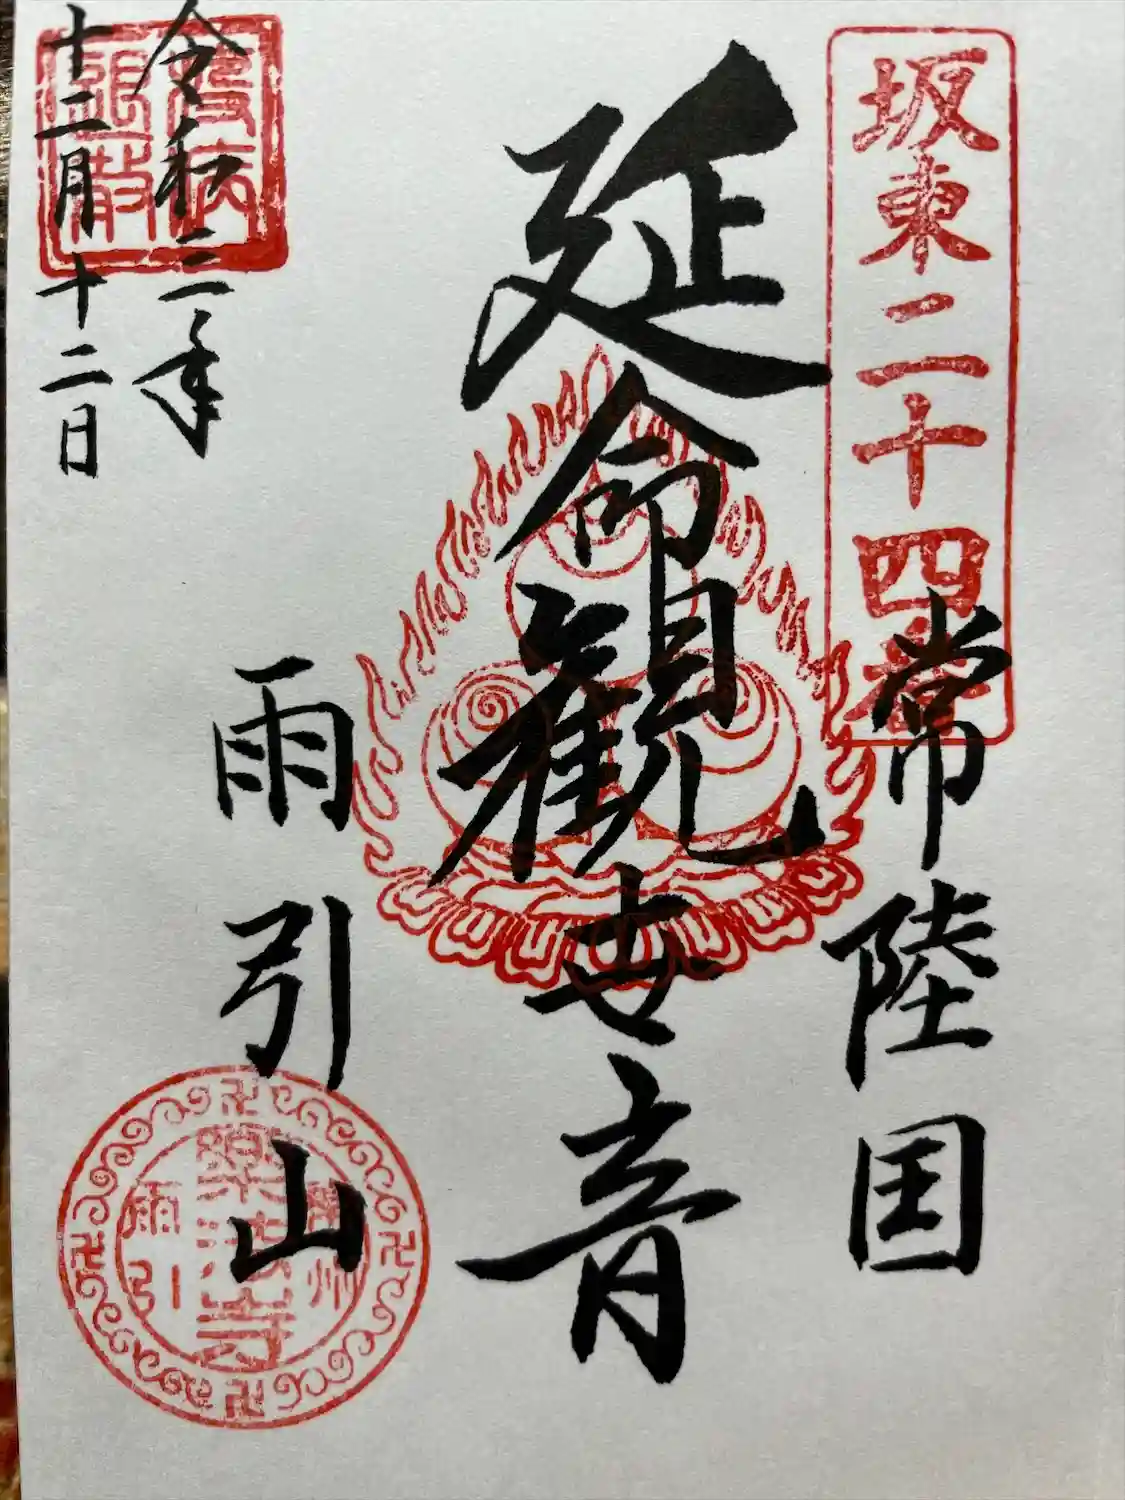 坂東二十四番
常陸国
延命観世音
雨引山
常州
樂法寺
雨引
令和二年
十二月十二日
疫病
退散